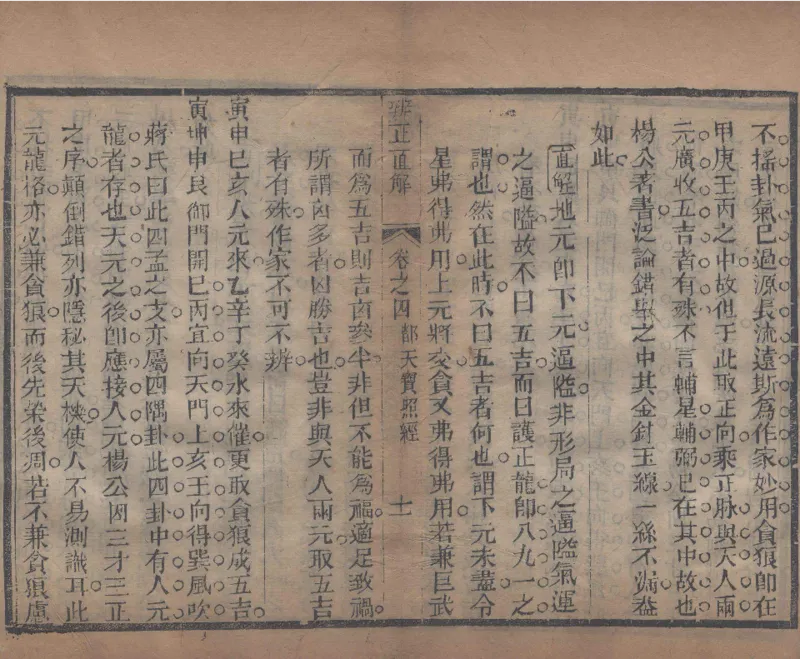 不搖卦氣已過源長流遠斯為作家妙用貪狼卽在
甲庚壬丙之中故但于此取正向乘正脉與天人兩
元廣收五吉者有殊不言輔星輔弼已在其中故也
楊公著書泛論錯舉之中其金針玉線一絲不漏葢
如此
直解地元卽下元逼隘非形局之逼隘氣運
之逼隘故不曰五吉而曰護正龍卽八九一之
謂也然在此時不曰五吉者何也謂下元未盡令
星弗得弗用上元將交貪又弗得弗用若兼巨武
辨正直解 卷之四 都天寶照經 十一
而爲五吉則吉凶參半非但不能爲福適足致禍
所謂凶多者因勝吉也豈非與天人兩元取五吉
者有殊作家不可不辨
寅申巳亥人元來乙辛丁癸水來催更取貪狼成五吉
寅坤申艮御門開巳丙宜向天門上亥壬向得巽風吹
蔣氏曰此四孟之支亦屬四隅卦此四卦中有人元
龍者存也天元之後卽應接人元楊公因三才三正
之序顛倒錯列亦隱秘其天機使人不易測識耳此
元龍格亦必兼貪狼而後先榮後凋若不兼貪狼慮